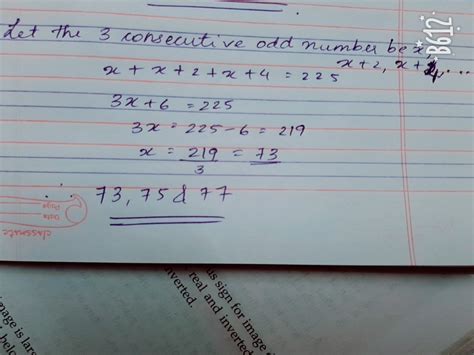 Let the 3 consecutive odd number be x,
x+2, x+4, ...
x + x + 2 + x + 4 = 225
3x + 6 = 225
3x = 225 - 6 = 219
x = 219 = 73
3
∴ 73, 75 & 77
classmate
Date
Page
B612
us sign for image
real and inverted
nverted.
mage is